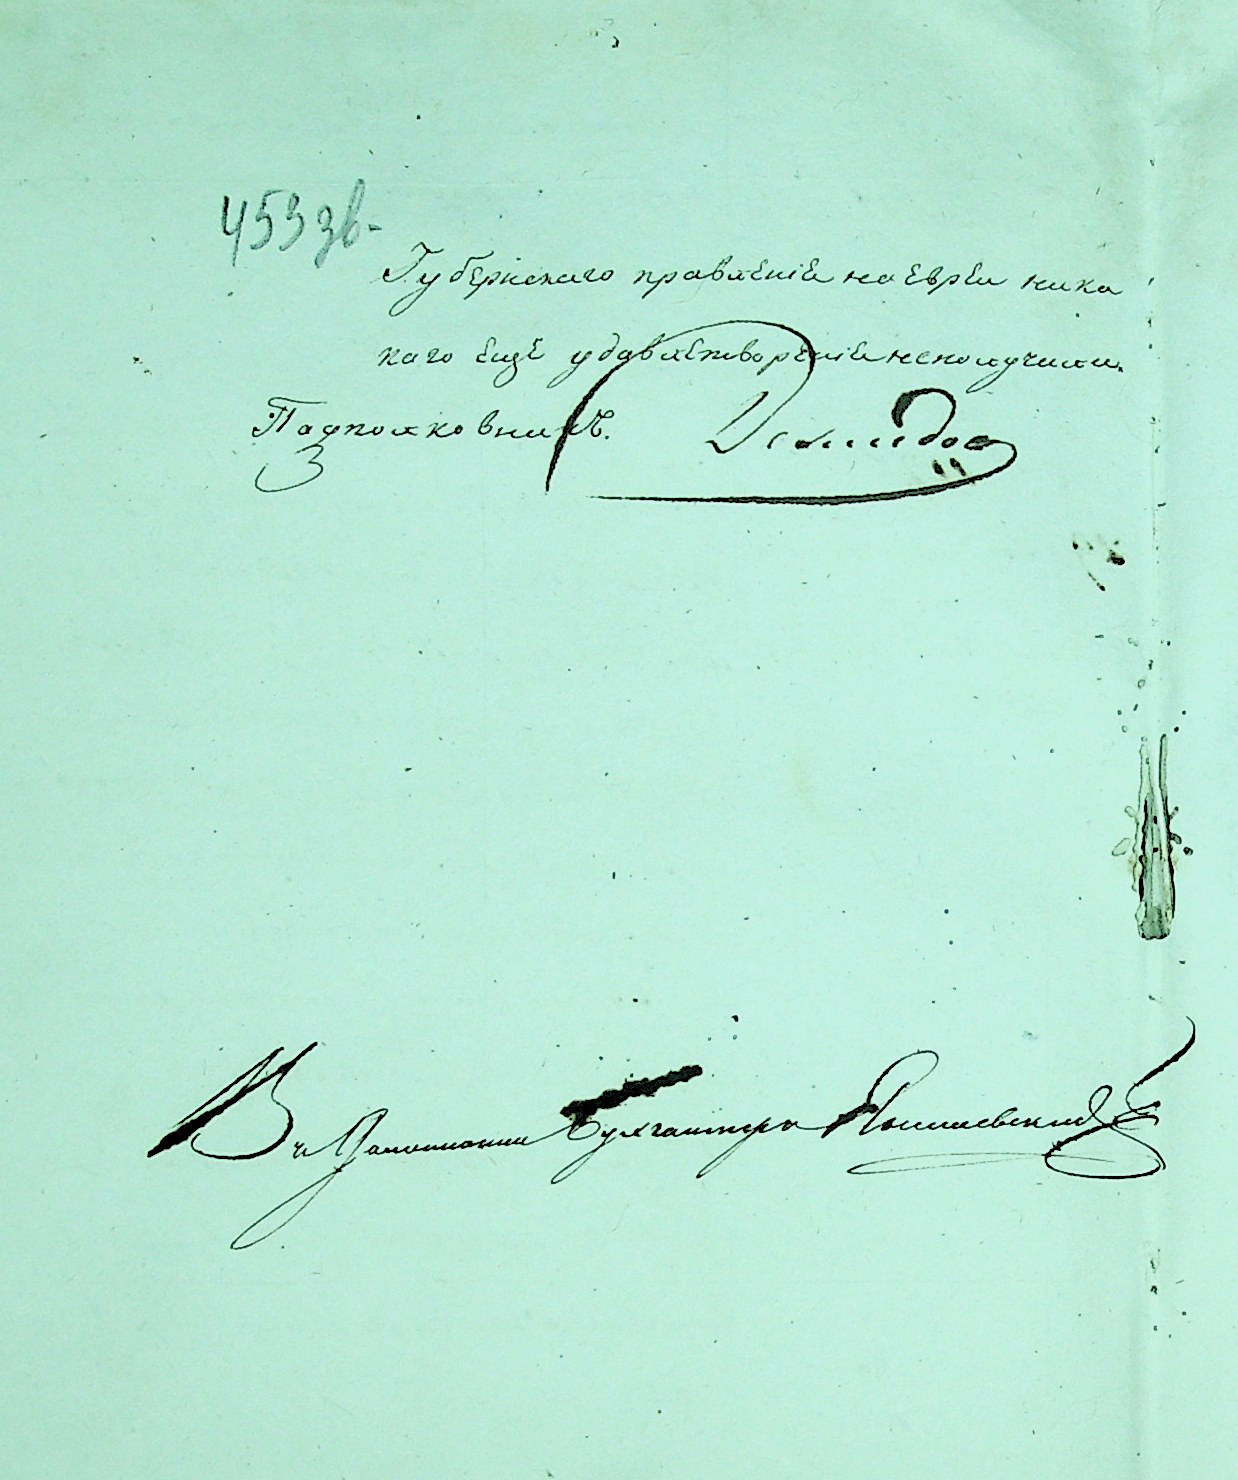 453 зв-
Губернскаго правленіе на Евреи ника
каго ещё удавлетвореніе неполучили.
Падполковникъ. Демидов
В ч Далжнании Бухгалтера